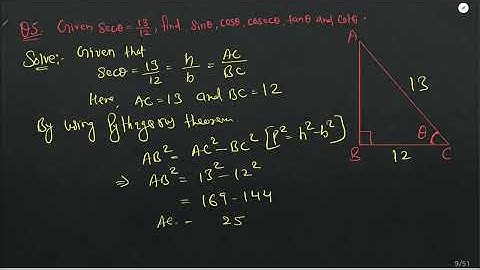 Q5. Given secθ = 13/12, find sinθ, cosθ, cosecθ, tanθ and cotθ.
Solve:- Given that
secθ = 13/12 = h/b = AC/BC
Here, AC = 13 and BC = 12
By using Pythagorus theorem
AB² = AC² - BC² [p² = h² - b²]
⇒ AB² = 13² - 12²
= 169 - 144
= 25
A
13
θ
B
12
C
9/51